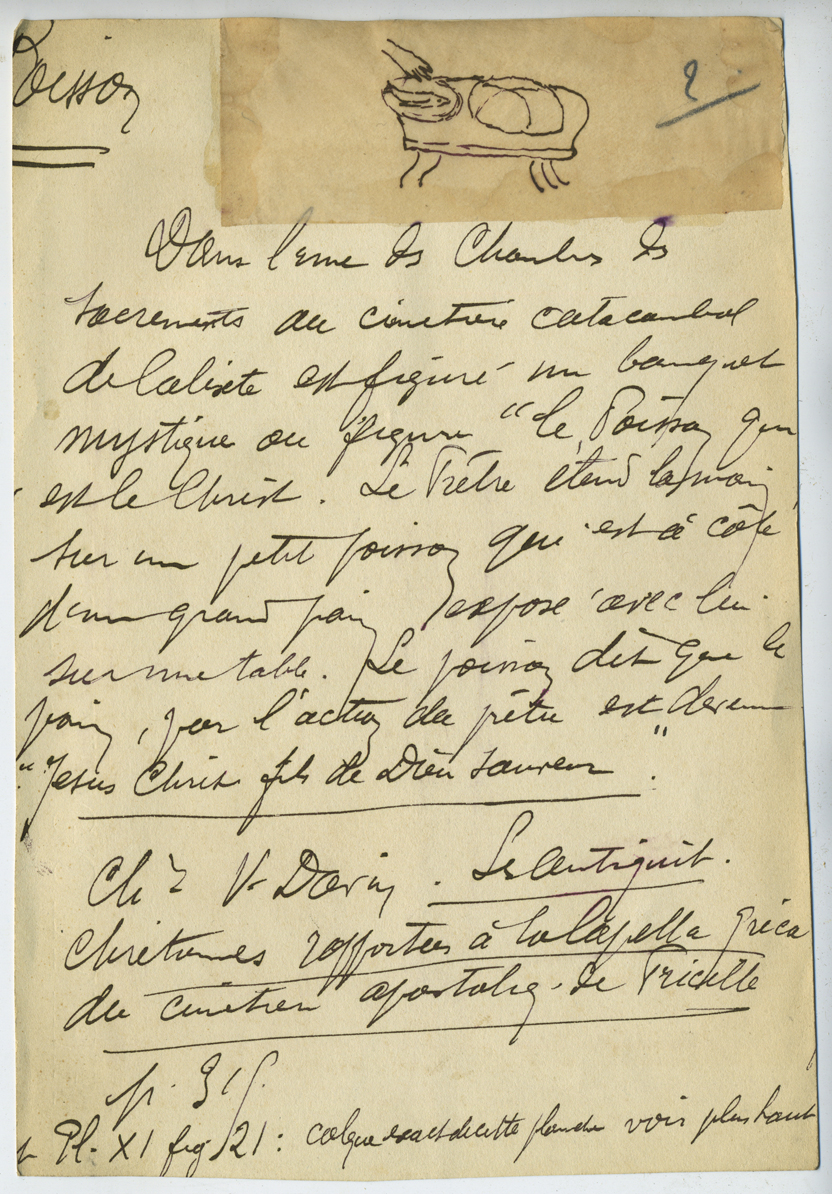 Poisson
?
Dans l'une des Chambres des
sacrements au cimetière catacombal
de Calixte est figuré un banquet
mystique ou figure "le Poisson qui
est le Christ. Le Prêtre étend la main
sur un petit poisson qui est à côté
d'un grand pain exposé avec lui
sur une table. Le poisson dit que le
pain, par l'action du prêtre est devenu
"Jesus Christ fils de Dieu sauveur".
V. Davin. Les Antiquit.
chretiennes rapportées à la Capella greca
du cimetière apostoliq. de Priscille
p.
Pl. XI fig 21 : calque exact de cette planche voir plus haut